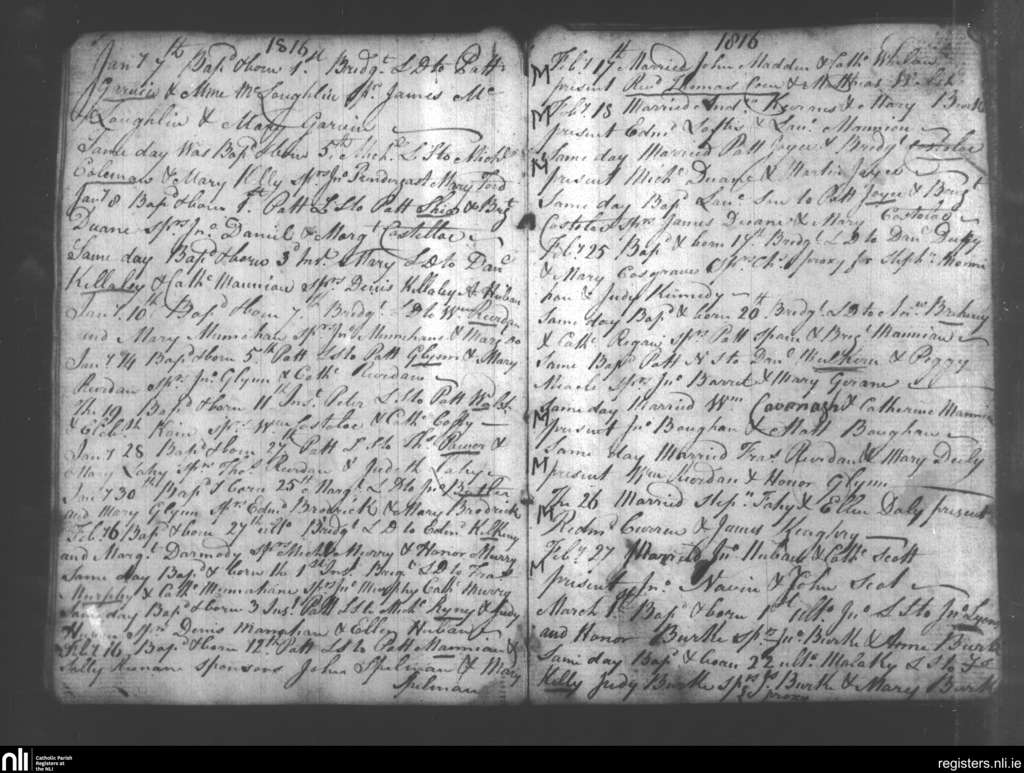 1816
Jany 7th Bapd & born 1st Bridgt L D to Patt
Garvin & Anne McLoughlin sprs James Mc
Loughlin & Mary Garvin
Same day was Bapd & born 5th Michl L S to Michl
Coleman & Mary Kelly sprs Jno Pendergast Mary Ford
Jany 8 Bapd & born 1st Patt L S to Patt & Bridgt
Duane sprs Jno Daniel & Margt Costelloe
Same day Bapd & born 3d Inst Mary L D to Danl
Killaley & Cathe Mannian sprs Denis Killaley & Huban
Jany 10th Bapd & born 7th Bridgt L D to Wm Reordan
and Mary Munnahan sprs Jno Munnahan & Mary do
Jany 14 Bapd & born 5th Patt L S to Patt Glynn & Mary
Reordan sprs Jno Glynn & Cathe Reordan
The 19 Bapd & born 11 Inst Peter L S to Patt
& Elizth Kain sprs Wm Costeloe & Cathe Coffy
Jany 28 Bapd & born 27th Patt L S to Thos Power &
Mary Lahy sprs Thos Reordan & Judith Lahy
Jany 30th Bapd & born 25th Margt L D to Jno Butler
and Mary Glynn sprs Edmd Brodrick & Mary Brodrick
Feby 6 Bapd & born 27th ulto Bridgt L D to Edmd Kilkeny
and Margt Darmody sprs Michl Murry & Honor Murry
Same day Bapd & born the 1st Inst Bridgt L D to Fras
Murphy & Cathe Munnahane sprs Jno Murphy Cathe Murry
Same day Bapd & born 3 Inst Patt L S to Michl Kyny & Judy
sprs Denis & Ellen Huban
Feby 16 Bapd & born 12th Patt L S to Patt Mannian &
Sally Kienan sponsors John Spelman & Mary
Spelman
1816
M Feby 17th Married John Madden & Cathe Whelan
present Revd Thomas Coen &
M Feby 18 Married Andw Kyornes & Mary Burke
present Edmd Loftis & Laue Mannion
M Same day Married Patt Joyce & Bridgt Costeloe
present Michl Duane & Martin Joyce
Same day Bapd Laue son to Patt Joyce & Bridgt
Costeloe sprs James Duane & Mary Costeloe
Feby 25 Bapd & born 17th Bridgt L D to Danl Duffy
& Mary Cosgrave sprs proxy for Stephn
& Judy Kennedy
Same day Bapd & born 20th Bridgt L D to
& Cathe Regan sprs Patt Spain & Bridgt Mannian
Same Bapd Patt N S to Danl Mulkern & Peggy
sprs Jno Barret & Mary
M Same day Married Wm Cavenagh & Catherine Mannian
present Jno Boughan & Matt Boughan
M Same day Married Fras Reordan & Mary Deely
present Wm Riordan & Honor Glynn
M The 26 Married Stepn Fahy & Ellen Daly present
Redmd Curren & James
M Feby 27 Married Jno Huban & Cathe Scott
present Jno Navin & John Scot
March 1st Bapd & born 1st ulto Jno L S to Jno Lyons
and Honor Burke sprs Jno Burke & Anne Burke
Same day Bapd & born 22 ulto Malachy L S to
Kelly Judy Burke sprs Burke & Mary Burke
proxy
nli Catholic Parish
Registers at
the NLI
registers.nli.ie